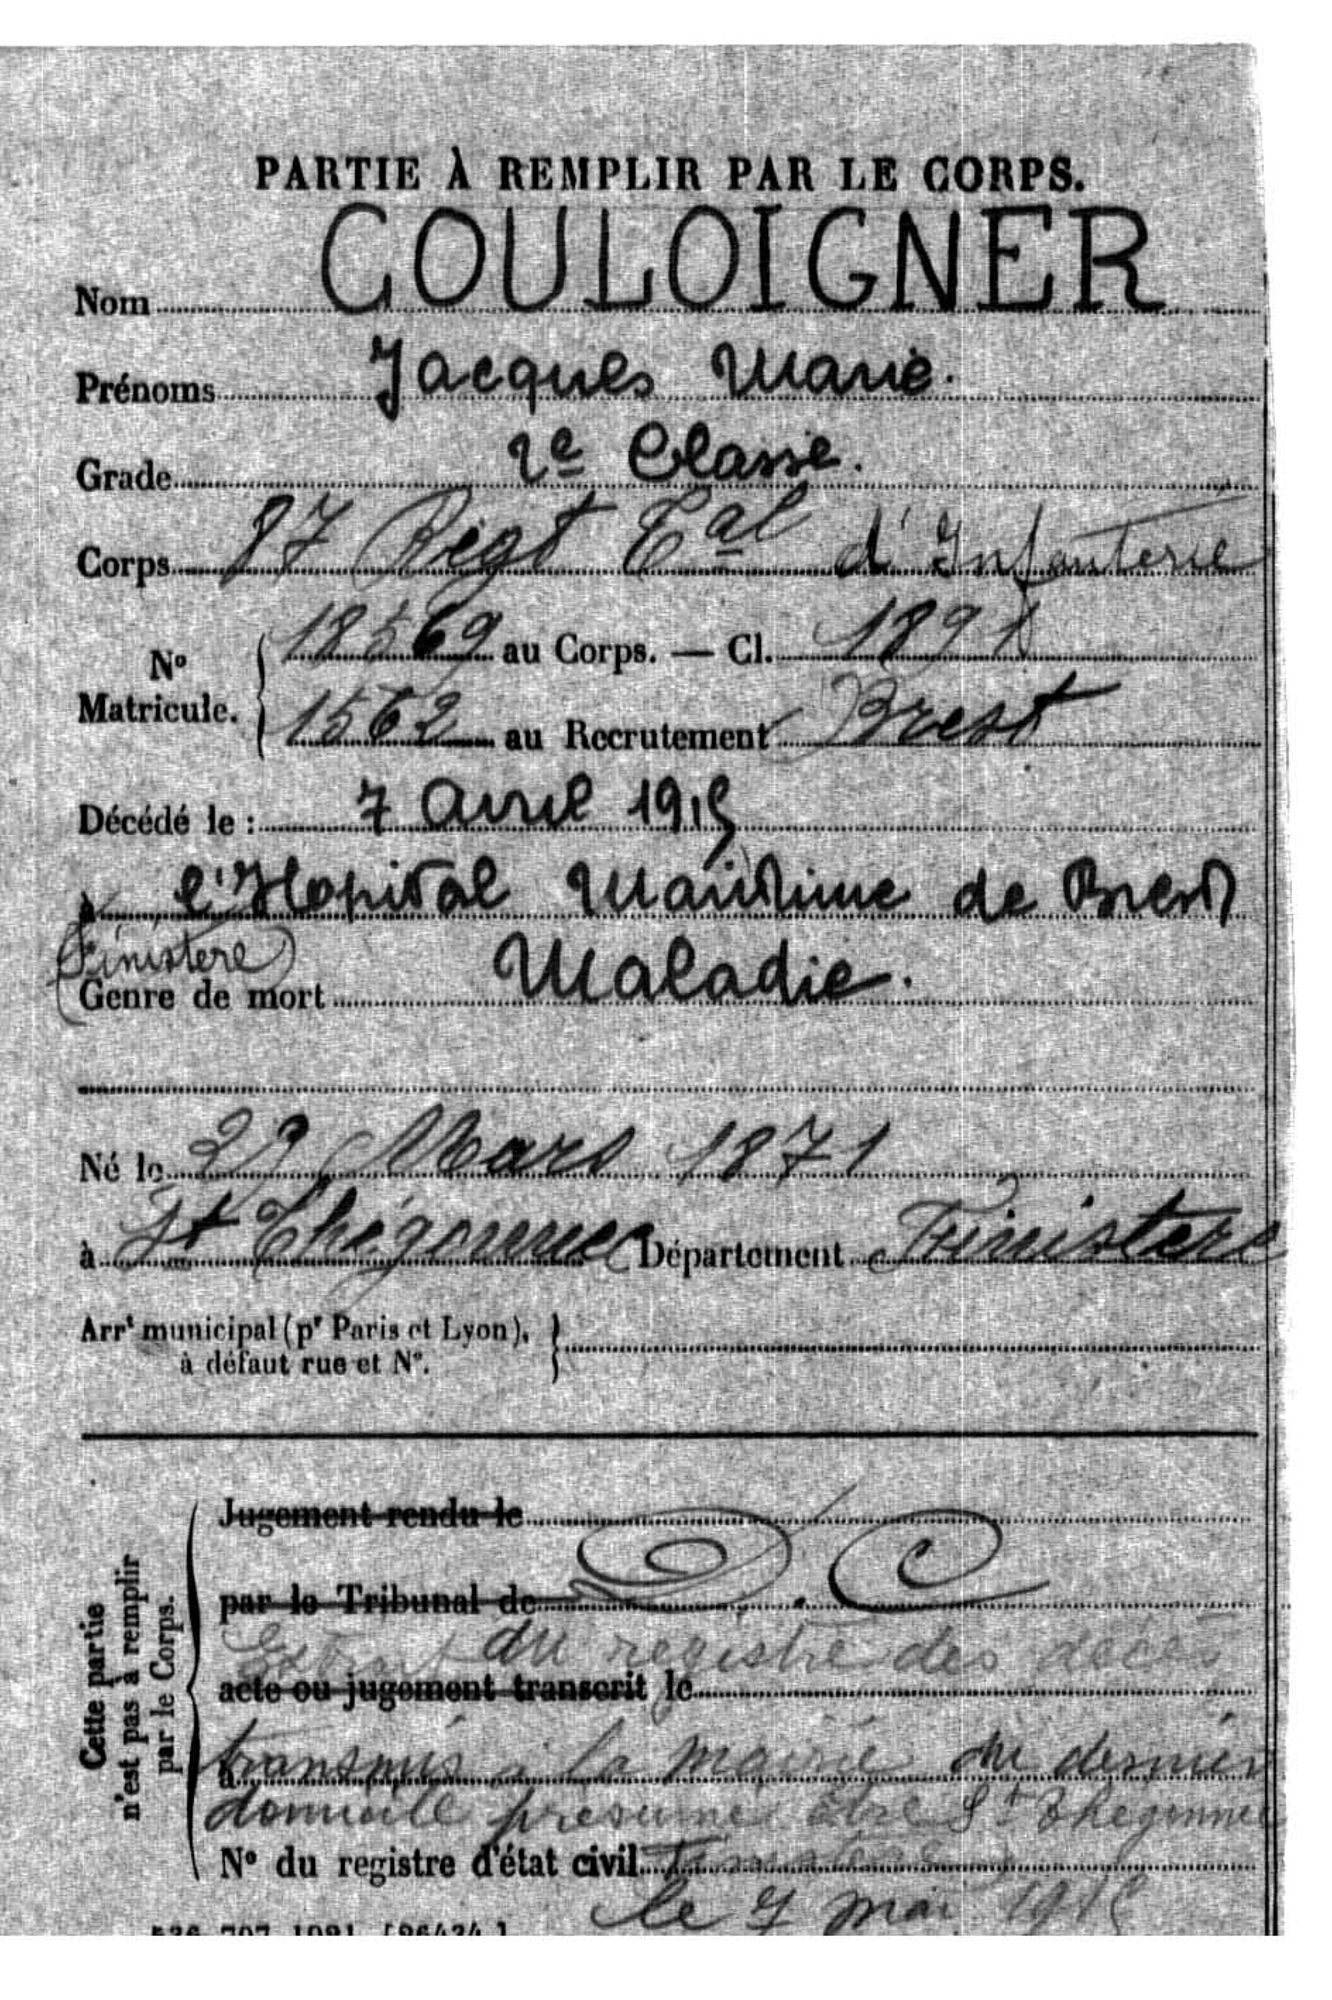 PARTIE À REMPLIR PAR LE CORPS.
Nom COULOIGNER
Prénoms Jacques Marie.
Grade 2e Classe.
Corps 87 Régt Tal d'Infanterie
No Matricule. 18569 au Corps. — Cl. 1891
1562 au Recrutement Brest
Décédé le : 7 Avril 1915
à l'Hopital Maritime de Brest
(Finistere)
Genre de mort Maladie.
Né le Mars 1871
à St Thégonnec Département Finistere
Arrt municipal (pr Paris et Lyon),
à défaut rue et No.
Cette partie
n'est pas à remplir
par le Corps.
Jugement rendu le
par le Tribunal de D.C
Extrait du registre des décès
acte ou jugement transcrit le
à transmis à la mairie du dernier
domicile présumé être St Thegonnec
No du registre d'état civil Finistere
le 7 mai 1915
536-707-1921. [26434.]